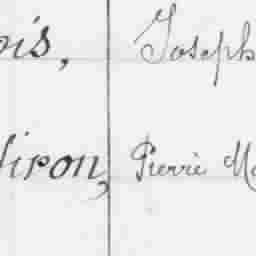 ois, Joseph
iron, Pierre Ma